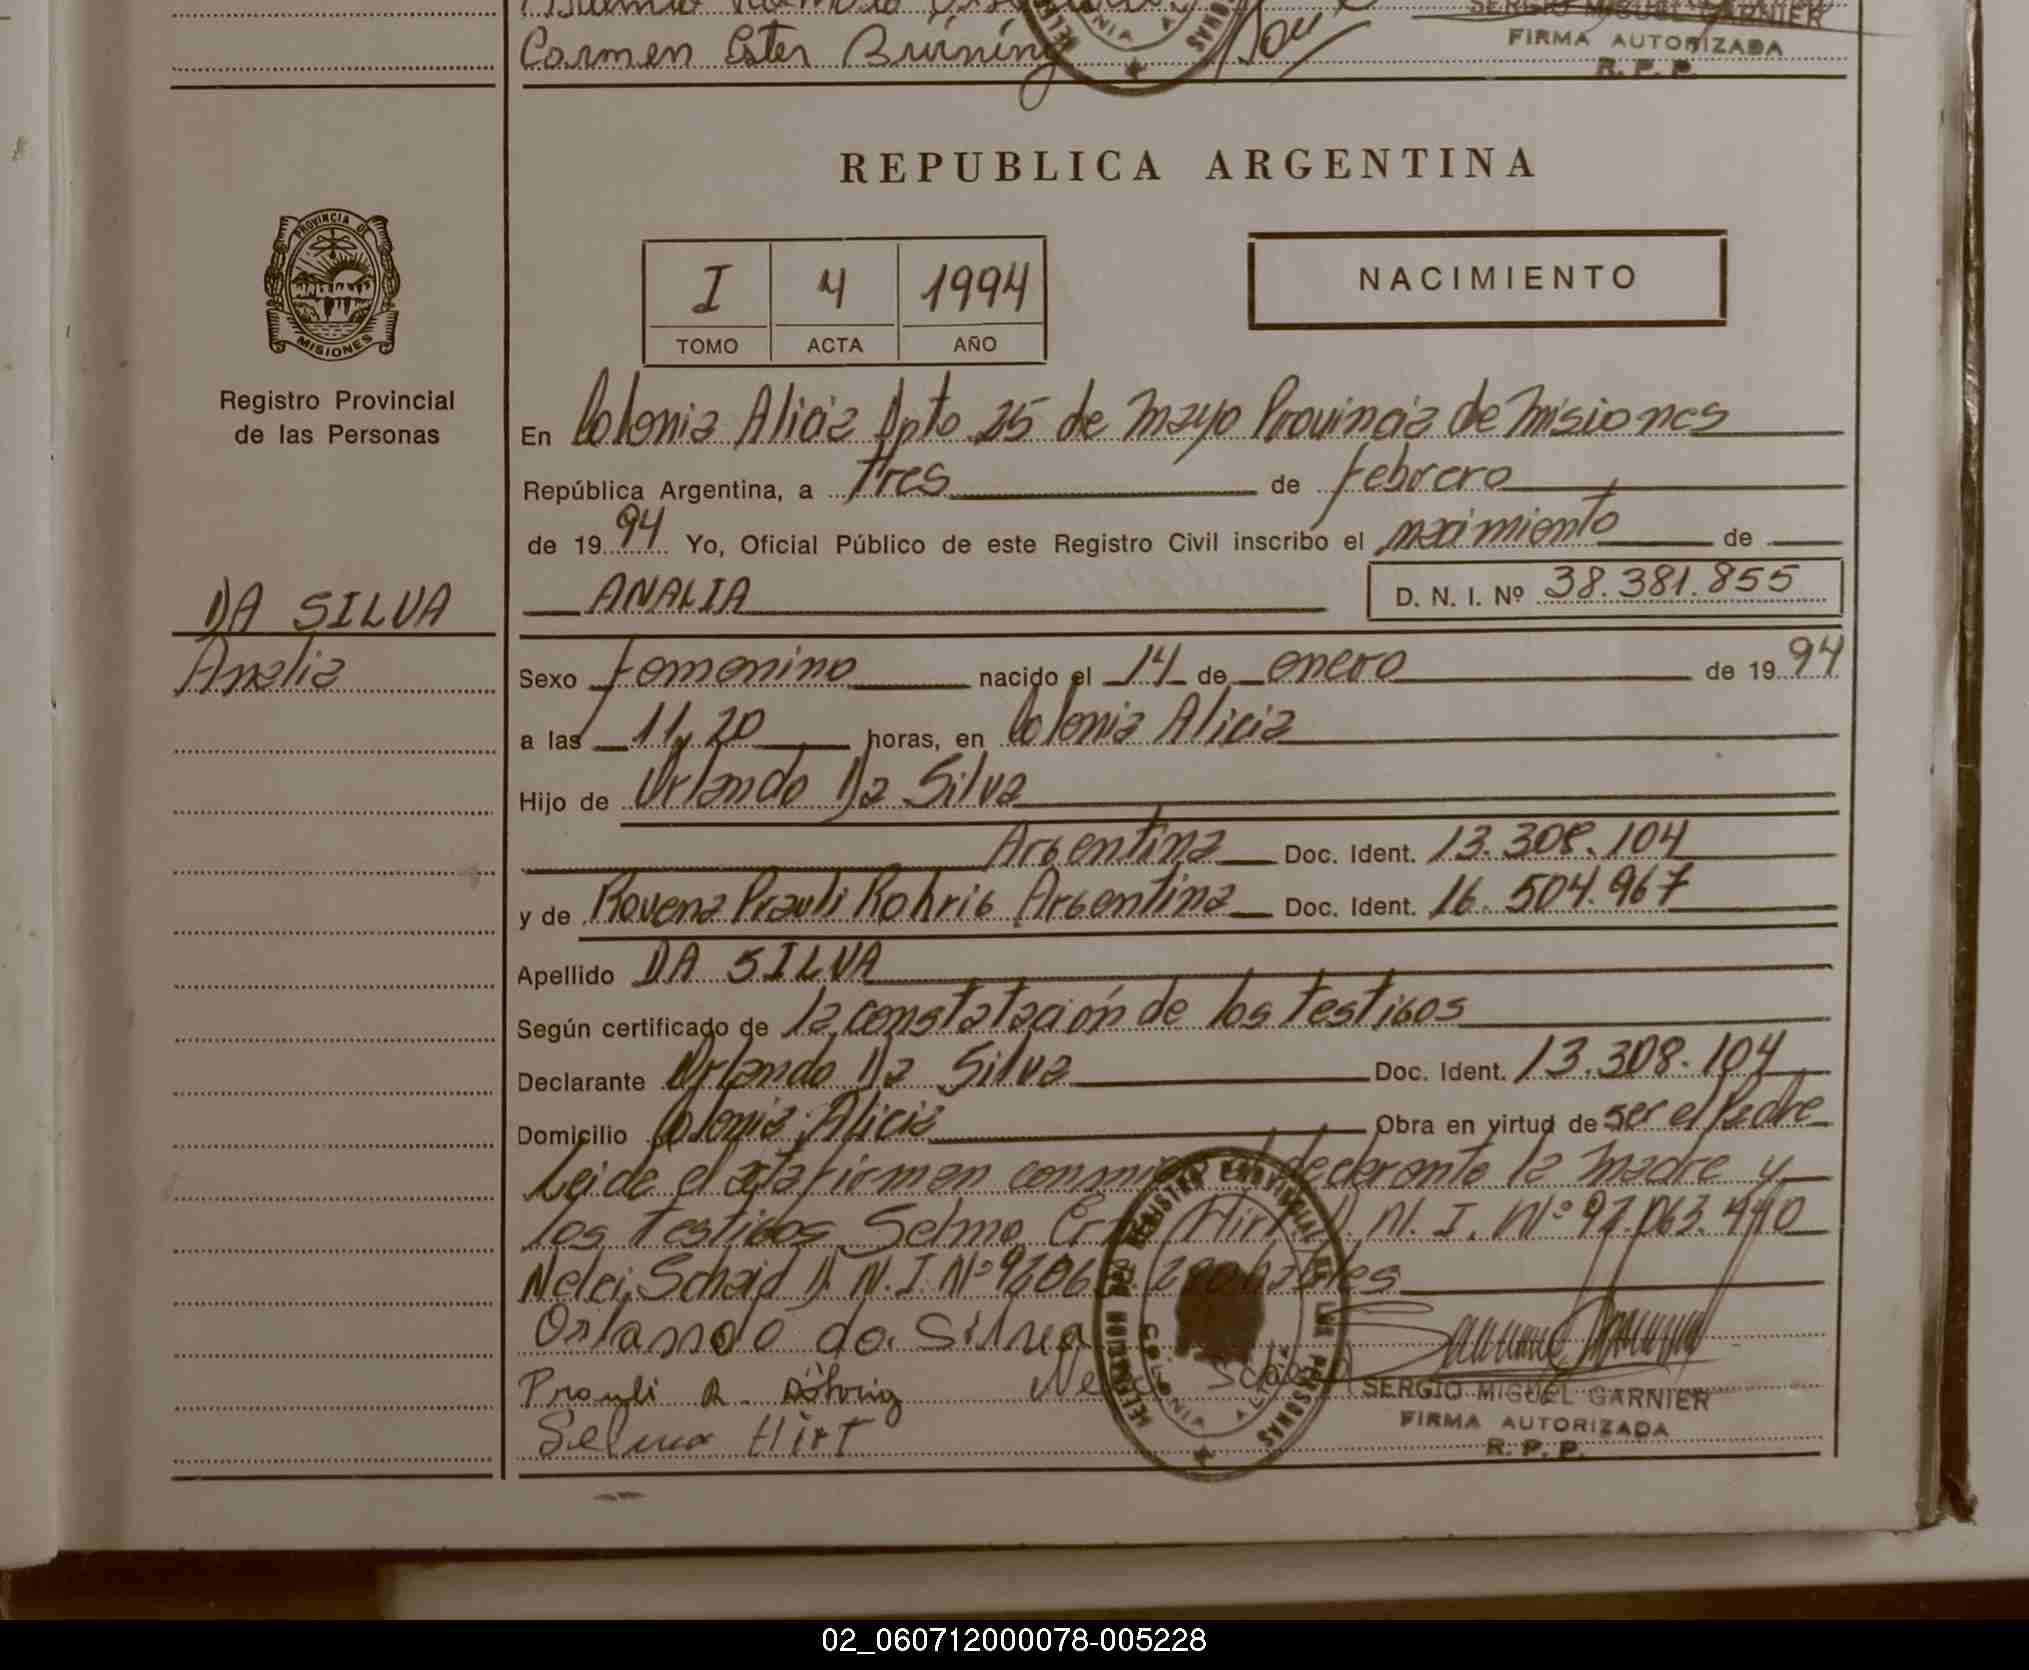 Carmen Ester Brüning
SERGIO MIGUEL GARNIER
FIRMA AUTORIZADA
R. P. P.
REPUBLICA ARGENTINA
PROVINCIA DE
MISIONES
Registro Provincial
de las Personas
I 4 1994
TOMO ACTA AÑO
NACIMIENTO
En Colonia Alicia Dpto 25 de Mayo Provincia de Misiones
República Argentina, a tres de febrero
de 1994 Yo, Oficial Público de este Registro Civil inscribo el nacimiento de
ANALIA D. N. I. Nº 38.381.855
DA SILVA
Analia
Sexo femenino nacido el 14 de enero de 1994
a las 11,20 horas, en Colonia Alicia
Hijo de Orlando Da Silva
Argentina Doc. Ident. 13.308.104
y de Rovena Prauli Rohrig Argentina Doc. Ident. 16.504.967
Apellido DA SILVA
Según certificado de la constatación de los testigos
Declarante Orlando Da Silva Doc. Ident. 13.308.104
Domicilio Colonia Alicia Obra en virtud de ser el Padre
Leida el acta firman declarante la madre y
los testigos Selma Hirt D. N. I. Nº 92.063.440
Nelci Schaid D. N. I. Nº
Orlando da Silva
Prauli R. Röhrig
Selma Hirt
SERGIO MIGUEL GARNIER
FIRMA AUTORIZADA
R. P. P.
02_060712000078-005228